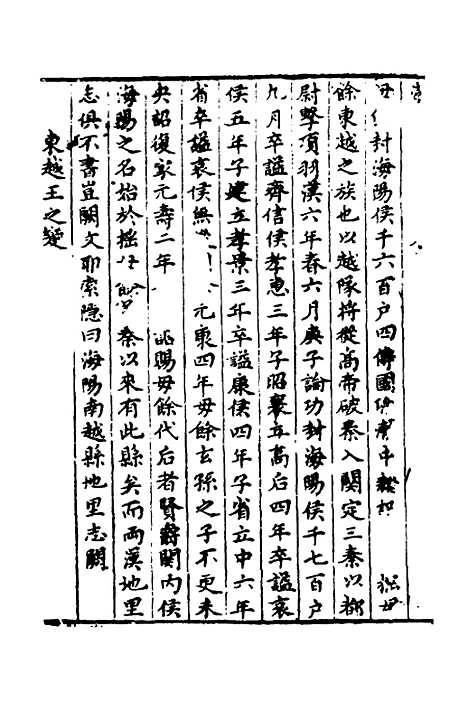 封海陽侯千六百户四傳國
餘東越之族也以越隊將從高帝破秦入関定三秦以都
尉擊項羽漢六年春六月庚子論功封海陽侯千七百户
九月卒謚齊信侯孝惠三年子昭襄立高后四年卒謚哀
侯五年子建立孝景三年卒謚康侯四年子省立中六年
省卒謚哀侯無 元康四年毋餘玄孫之子不更未
央詔復家元壽二年 賜毋餘代后者賢爵関内侯
海陽之名始於摇 餘 秦以來有此縣矣而兩漢地里
志俱不書豈闕文耶索隱曰海陽南越縣地里志闕
東越王之變